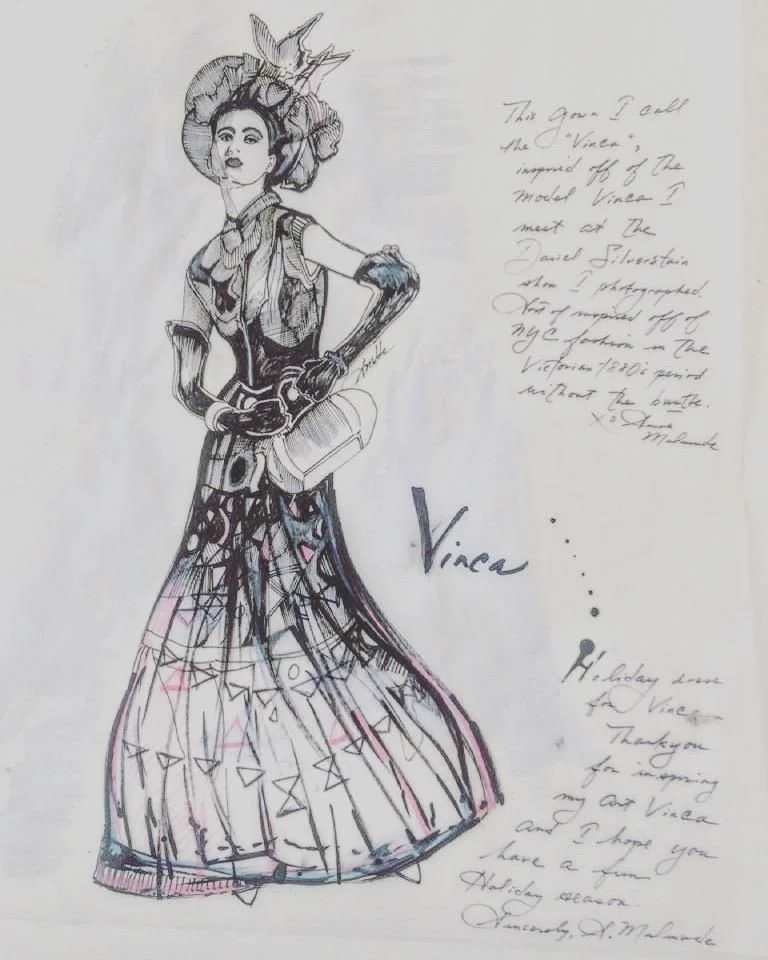 This gown I call
the "Vinca",
inspired off of the
Model Vinca I
meet at the
Daniel Silverstain
show I photographed.
Sort of inspired off of
NYC fashion in the
Victorian 1880's period
without the bustle.
XO
Vinca
Holiday dress
for Vinca
Thankyou
for inspiring
my art Vinca
and I hope you
have a fun
Holiday season.
Sincerely, A.